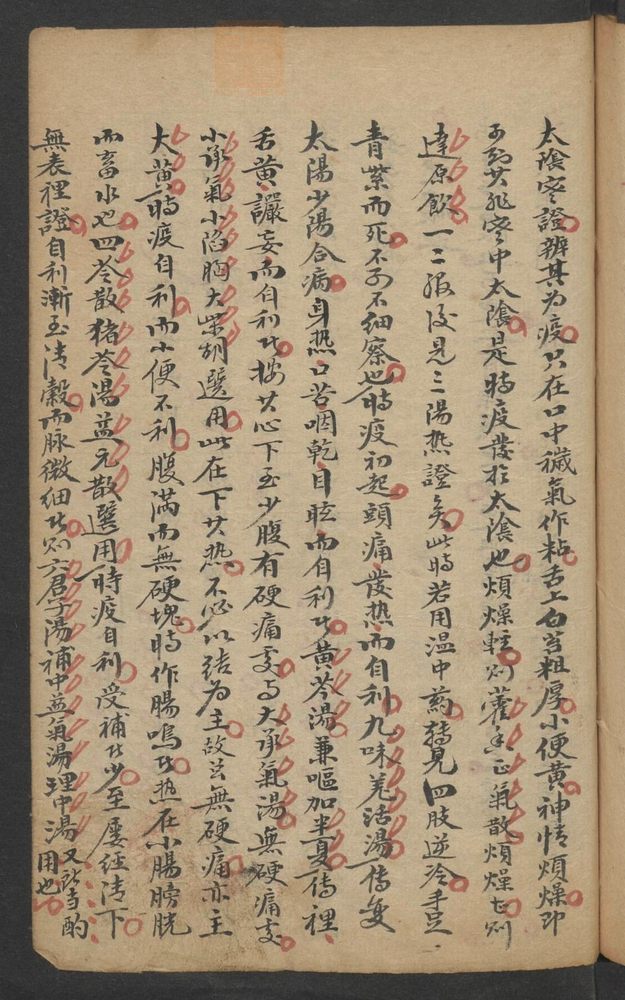 太陰寒證辨其为疫只在口中穢氣作粘舌上白苔粗厚小便黄神情煩燥即
可知其非寒中太陰是時疫發於太陰也煩燥輕則藿香正氣散煩燥甚則
達原飲一二服後見三陽热證矣此時若用温中药轉見四肢逆冷手足
青紫而死不可不細察也時疫初起頭痛發热而自利九味羌活湯傳变
太陽少陽合病身热口苦咽乾目眩而自利者黄芩湯兼嘔加半夏傳裡
舌黄譫妄而自利者按其心下至少腹有硬痛处与大承氣湯無硬痛处
小承氣小陷胸大柴胡選用此在下其热不必以結为主故虽無硬痛亦主
大黄時疫自利而小便不利腹満而無硬塊時作腸鳴者热在小腸膀胱
而畜水也四苓散猪苓湯益元散選用時疫自利受補者少至屡經清下
無表裡證自利漸至清穀而脉微細者则六君子湯補中益氣湯理中湯又所当酌
用也